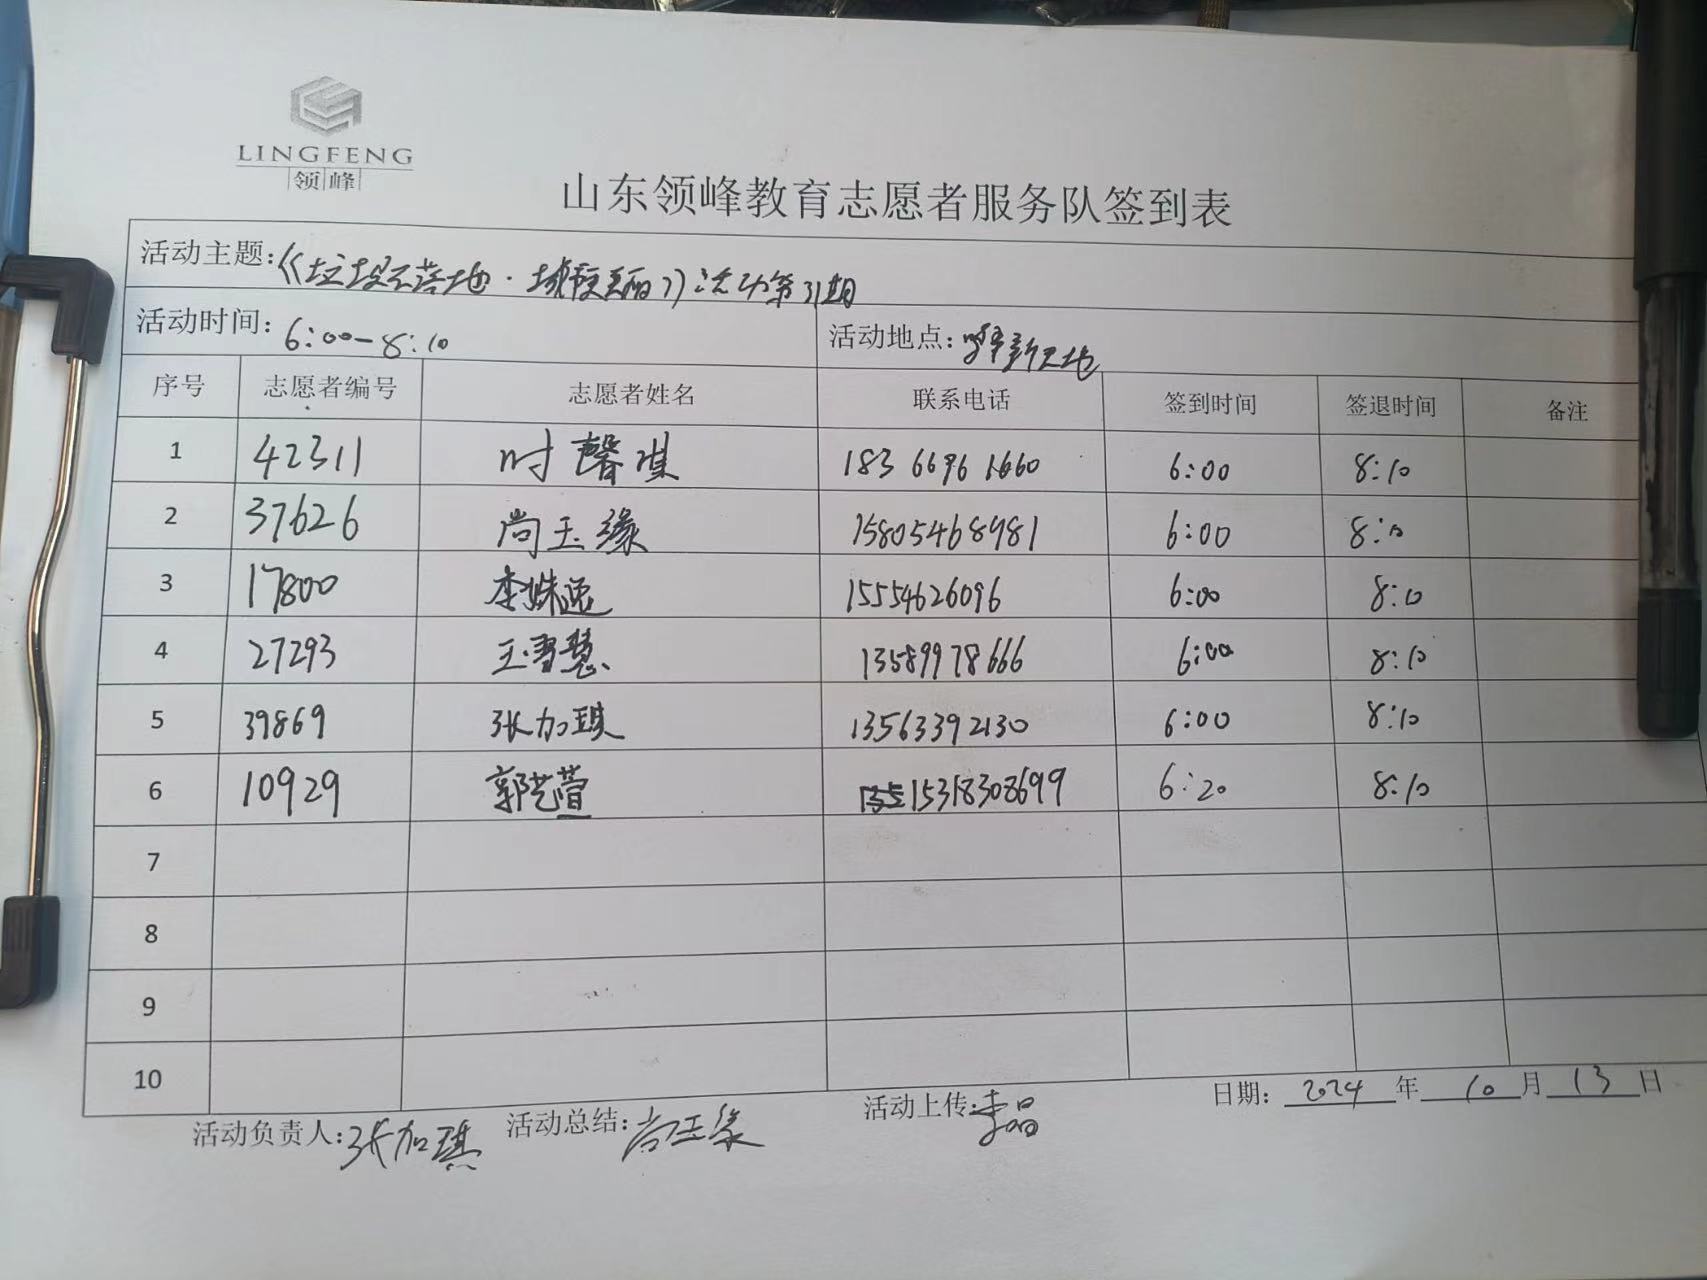 LINGFENG
领峰
山东领峰教育志愿者服务队签到表
活动主题:《垃圾不落地·城市更美丽》活动第31期
活动时间: 6:00-8:10 活动地点: 新天地
序号 志愿者编号 志愿者姓名 联系电话 签到时间 签退时间 备注
1 42311 时馨琪 183 6696 1660 6:00 8:10
2 37626 尚玉缘 15805468981 6:00 8:10
3 17800 李姝逸 15554626096 6:00 8:10
4 27293 王雪慧 13589978666 6:00 8:10
5 39869 张加琪 13563392130 6:00 8:10
6 10929 郭艺萱 15318308699 6:20 8:10
7
8
9
10
活动负责人:张加琪 活动总结:尚玉缘 活动上传:李晶 日期: 2024 年 10 月 13 日